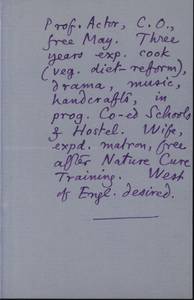 Prof. Actor, C.O.,
free May. Three
years exp. cook
(veg. diet-reform),
drama, music,
handcrafts, in
prog. Co-ed Schools
& Hostel. Wife,
expd. matron, free
after Nature Cure
Training. West
of Engl. desired.